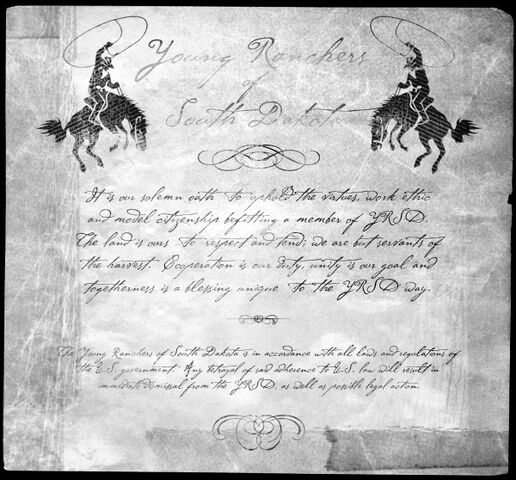 Young Ranchers
of
South Dakota
It is our solemn oath to uphold the virtues, work ethic
and model citizenship befitting a member of YRSD.
The land is ours to respect and tend; we are but servants of
the harvest. Cooperation is our duty, unity is our goal and
togetherness is a blessing unique to the YRSD way.
The Young Ranchers of South Dakota is in accordance with all laws and regulations of
the U.S. government. Any betrayal of sad adherence to U.S. law will result in
immediate dismissal from the YRSD, as well as possible legal action.